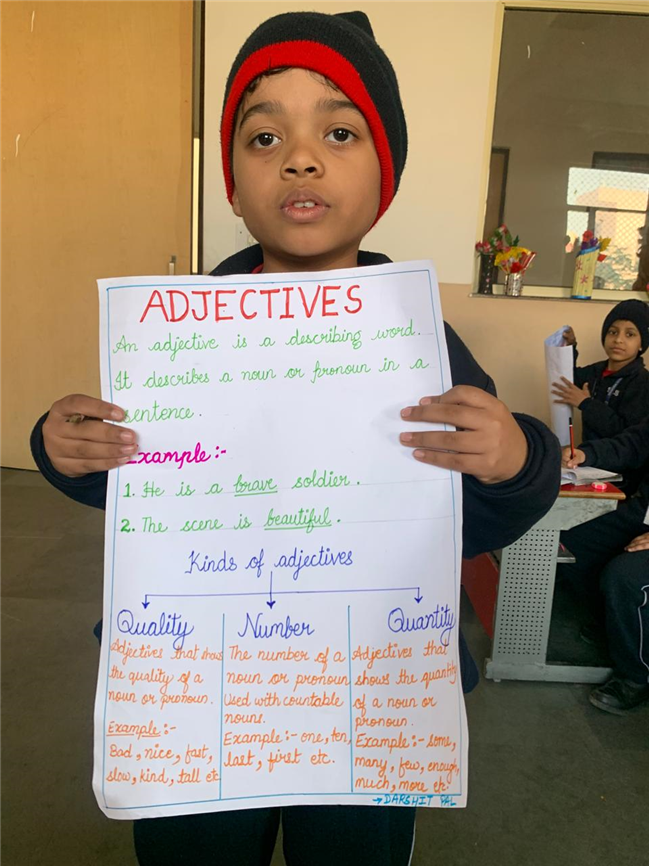 ADJECTIVES
An adjective is a describing word.
It describes a noun or pronoun in a
sentence.
Example:-
1. He is a brave soldier.
2. The scene is beautiful.
Kinds of adjectives
Quality
Adjectives that shows
the quality of a
noun or pronoun.
Example:-
Bad, nice, fast,
slow, kind, tall etc
Number
The number of a
noun or pronoun
Used with countable
nouns.
Example:- one, ten,
last, first etc.
Quantity
Adjectives that
shows the quantity
of a noun or
pronoun.
Example:- some,
many, few, enough,
much, more etc.
→DARSHIT PAL